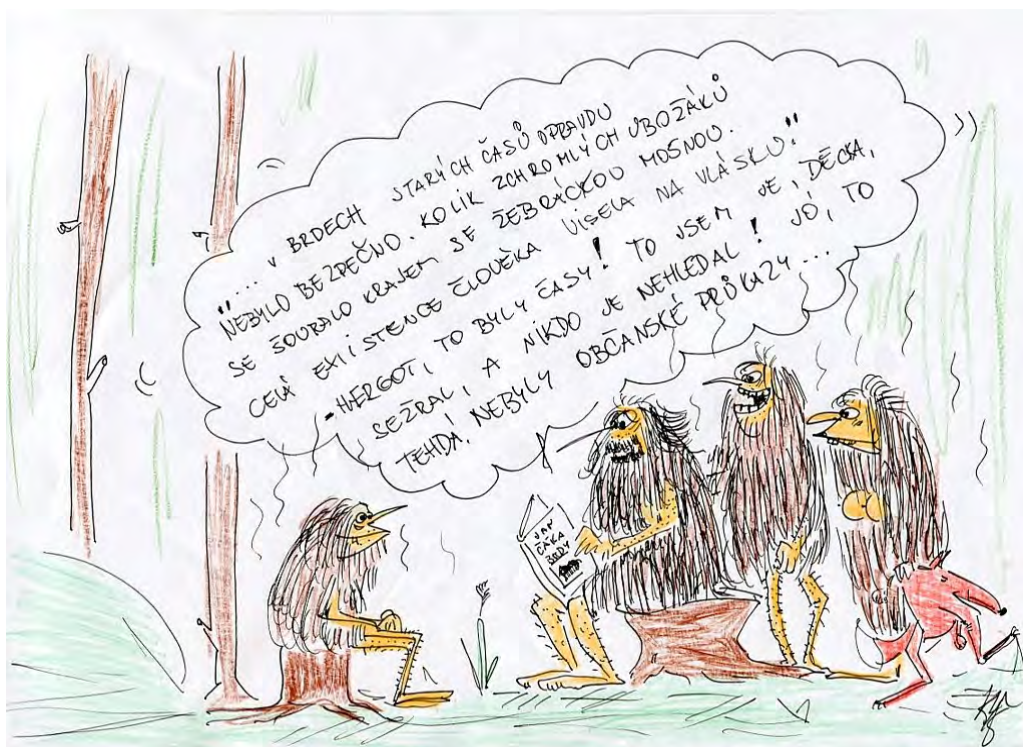 "... V BRDECH STARÝCH ČASŮ OPRAVDU
NEBYLO BEZPEČNO. KOLIK ZCHROMLÝCH UBOŽÁKŮ
SE ŠOURALO KRAJEM SE ŽEBRÁCKOU MOŠNOU.
CELÁ EXISTENCE ČLOVĚKA VISELA NA VLÁSKU."
- HERGOT, TO BYLY ČASY! TO JSEM JE, DĚCKA,
SEŽRAL, A NIKDO JE NEHLEDAL! JÓ, TO
TEHDÁ NEBYLY OBČANSKÉ PRŮKAZY...
JAN
ČÁKA
BRDY